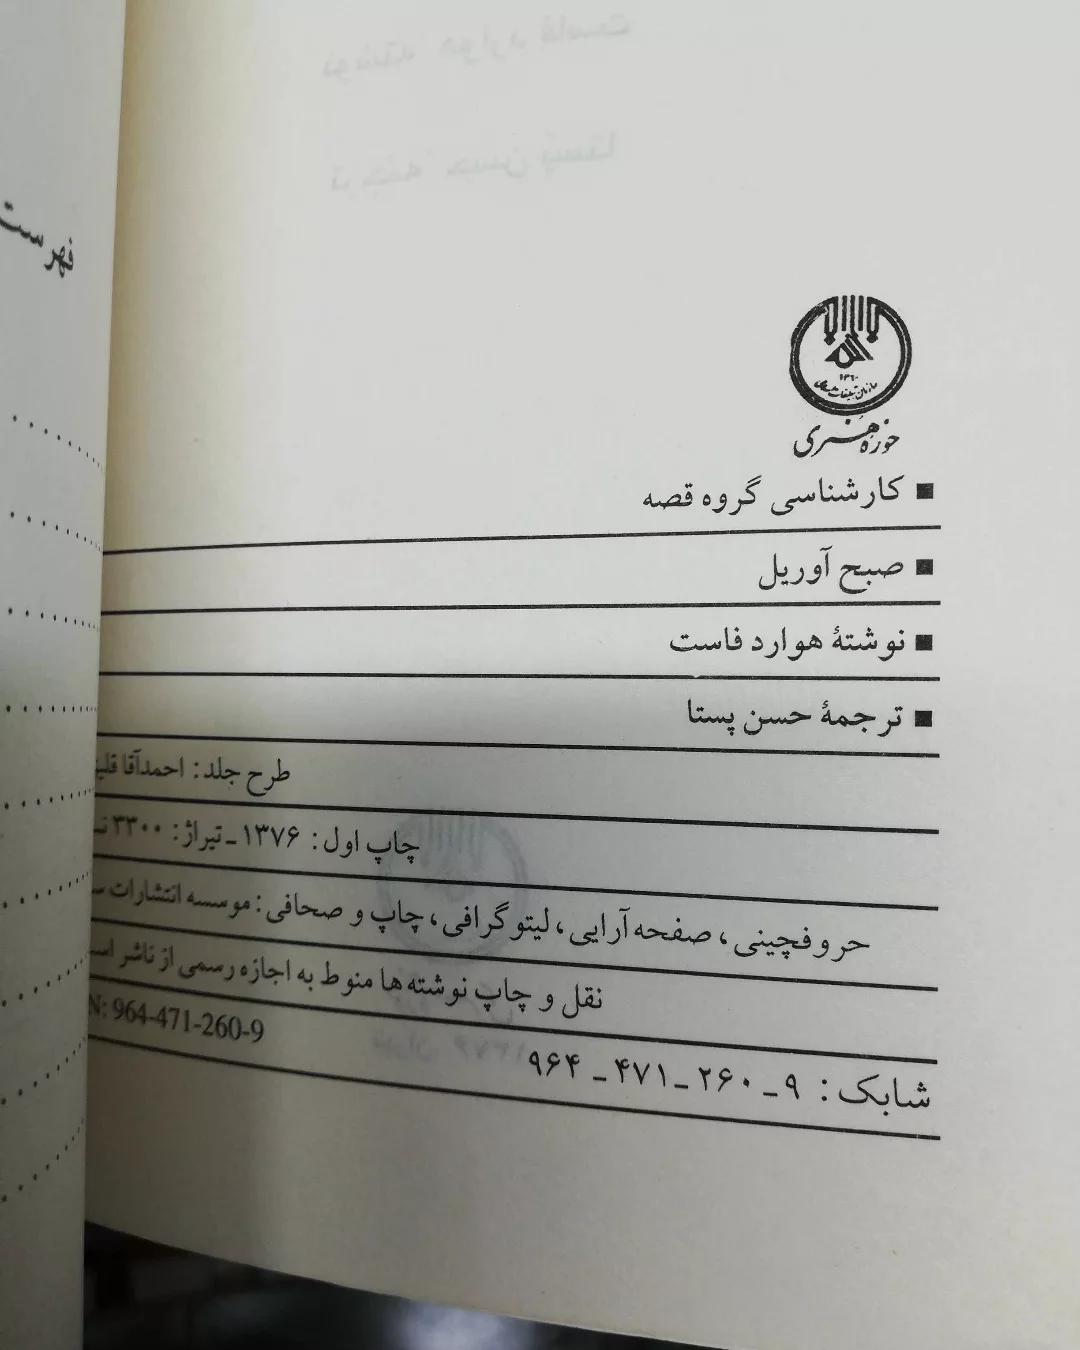 فهرست
۱۳۶۰
سازمان تبلیغات اسلامی
حوزه هنری
■ کارشناسی گروه قصه
■ صبح آوریل
■ نوشتهٔ هوارد فاست
■ ترجمهٔ حسن پستا
طرح جلد: احمدآقا
چاپ اول: ۱۳۷۶ ـ تیراژ: ۳۳۰۰
حروفچینی، صفحه‌آرایی، لیتوگرافی، چاپ و صحافی: موسسه انتشارات
نقل و چاپ نوشته‌ها منوط به اجازه رسمی از ناشر
شابک: ۹ ـ ۲۶۰ ـ ۴۷۱ ـ ۹۶۴
N: 964-471-260-9